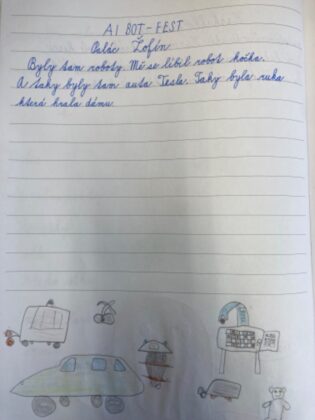 AI BOT-FEST
Palác Žofín
Byly tam roboty. Mě se líbil robot kočka.
A taky byly tam auta Tesla. Taky byla ruka
která hrála dámu.